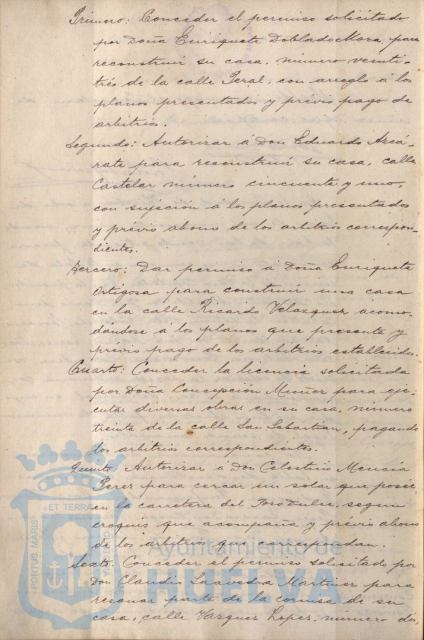 Primero: Conceder el permiso solicitado
por Doña Enriqueta Doblado Mora para
reconstruir su casa, número veinti-
trés de la calle Peral, con arreglo á los
planos presentados y prévio pago de
arbitrios.
Segundo: Autorizar á Don Eduardo Azcá-
rate para reconstruir su casa, calle
Castelar número cincuenta y uno,
con sujeción á los planos presentados
y prévio abono de los arbitrios correspon-
dientes.
Tercero: Dar permiso á Doña Enriqueta
Ortigosa para construir una casa
en la calle Ricardo Velazquez, acomo-
dándose á los planos que presenta y
prévio pago de los arbitrios establecidos.
Cuarto: Conceder la licencia solicitada
por Doña Concepción Muñoz para eje-
cutar diversas obras en su casa, número
treinta de la calle San Sebastian, pagando
los arbitrios correspondientes.
Quinto: Autorizar á don Celestino Mencía
Perez para cercar un solar que posée
en la carretera del segun
croquis que acompaña y prévio abono
de los arbitrios que correspondan.
Sexto: Conceder el permiso solicitado por
Don Claudio Saavedra Martinez para
resanar parte de la cornisa de su
casa, calle Vazquez Lopez, número di
PORTUS MARIS ET TERRÆ
Ayuntamiento de
HUELVA